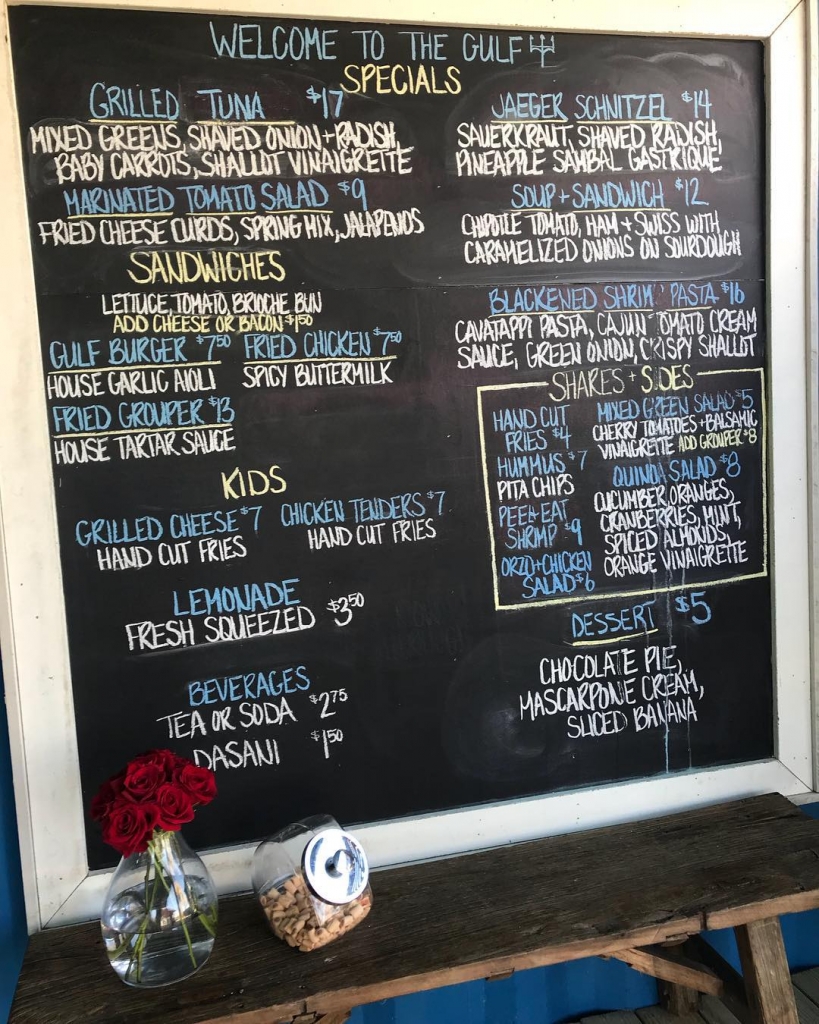 WELCOME TO THE GULF
SPECIALS
GRILLED TUNA $17
MIXED GREENS, SHAVED ONION + RADISH,
BABY CARROTS, SHALLOT VINAIGRETTE
MARINATED TOMATO SALAD $9
FRIED CHEESE CURDS, SPRING MIX, JALAPENOS
SANDWICHES
LETTUCE, TOMATO, BRIOCHE BUN
ADD CHEESE OR BACON $1.50
GULF BURGER $7.50
HOUSE GARLIC AIOLI
FRIED CHICKEN $7.50
SPICY BUTTERMILK
FRIED GROUPER $13
HOUSE TARTAR SAUCE
KIDS
GRILLED CHEESE $7
HAND CUT FRIES
CHICKEN TENDERS $7
HAND CUT FRIES
LEMONADE
FRESH SQUEEZED $3.50
BEVERAGES
TEA OR SODA $2.75
DASANI $1.50
JAEGER SCHNITZEL $14
SAUERKRAUT, SHAVED RADISH,
PINEAPPLE SAMBAL GASTRIQUE
SOUP + SANDWICH $12
CHIPOTLE TOMATO, HAM + SWISS WITH
CARAMELIZED ONIONS ON SOURDOUGH
BLACKENED SHRIMP PASTA $16
CAVATAPPI PASTA, CAJUN TOMATO CREAM
SAUCE, GREEN ONION, CRISPY SHALLOT
SHARES + SIDES
HAND CUT
FRIES $4
HUMMUS $7
PITA CHIPS
PEEL+EAT
SHRIMP $9
ORZO+CHICKEN
SALAD $6
MIXED GREEN SALAD $5
CHERRY TOMATOES + BALSAMIC
VINAIGRETTE ADD GROUPER $8
QUINOA SALAD $8
CUCUMBER, ORANGES,
CRANBERRIES, MINT,
SPICED ALMONDS,
ORANGE VINAIGRETTE
DESSERT $5
CHOCOLATE PIE,
MASCARPONE CREAM,
SLICED BANANA